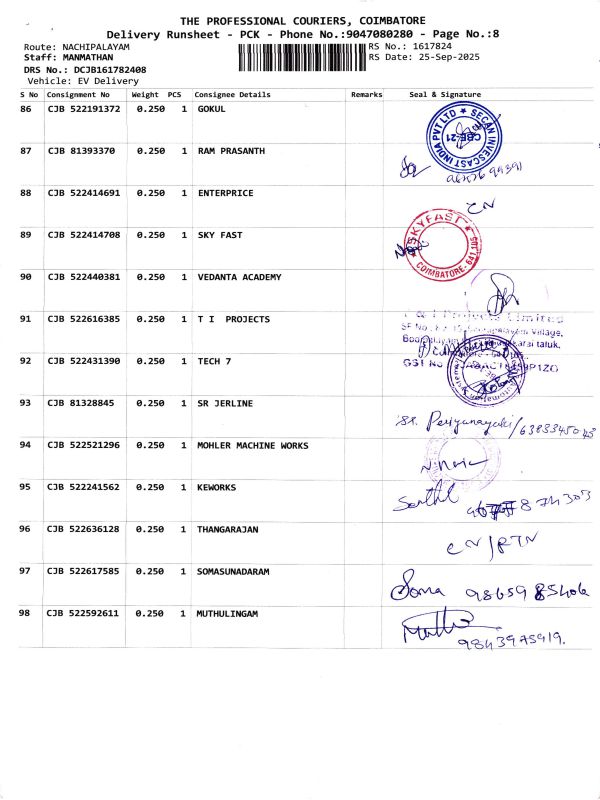 THE PROFESSIONAL COURIERS, COIMBATORE
Delivery Runsheet - PCK - Phone No.:9047080280 - Page No.:8
Route: NACHIPALAYAM RS No.: 1617824
Staff: MANMATHAN RS Date: 25-Sep-2025
DRS No.: DCJB161782408
Vehicle: EV Delivery
S No Consignment No Weight PCS Consignee Details Remarks Seal & Signature
86 CJB 522191372 0.250 1 GOKUL
SECAN INVESCAST INDIA PVT LTD ★
CBE-21
87 CJB 81393370 0.250 1 RAM PRASANTH
88 CJB 522414691 0.250 1 ENTERPRICE CN
89 CJB 522414708 0.250 1 SKY FAST
★ SKYFAST ★
COIMBATORE- 641 105
90 CJB 522440381 0.250 1 VEDANTA ACADEMY
91 CJB 522616385 0.250 1 T I  PROJECTS
Limited
Village,
taluk,
GST No
92 CJB 522431390 0.250 1 TECH 7
93 CJB 81328845 0.250 1 SR JERLINE
94 CJB 522521296 0.250 1 MOHLER MACHINE WORKS
95 CJB 522241562 0.250 1 KEWORKS
96 CJB 522636128 0.250 1 THANGARAJAN CN/RTN
97 CJB 522617585 0.250 1 SOMASUNADARAM Soma
98 CJB 522592611 0.250 1 MUTHULINGAM
9843975919.